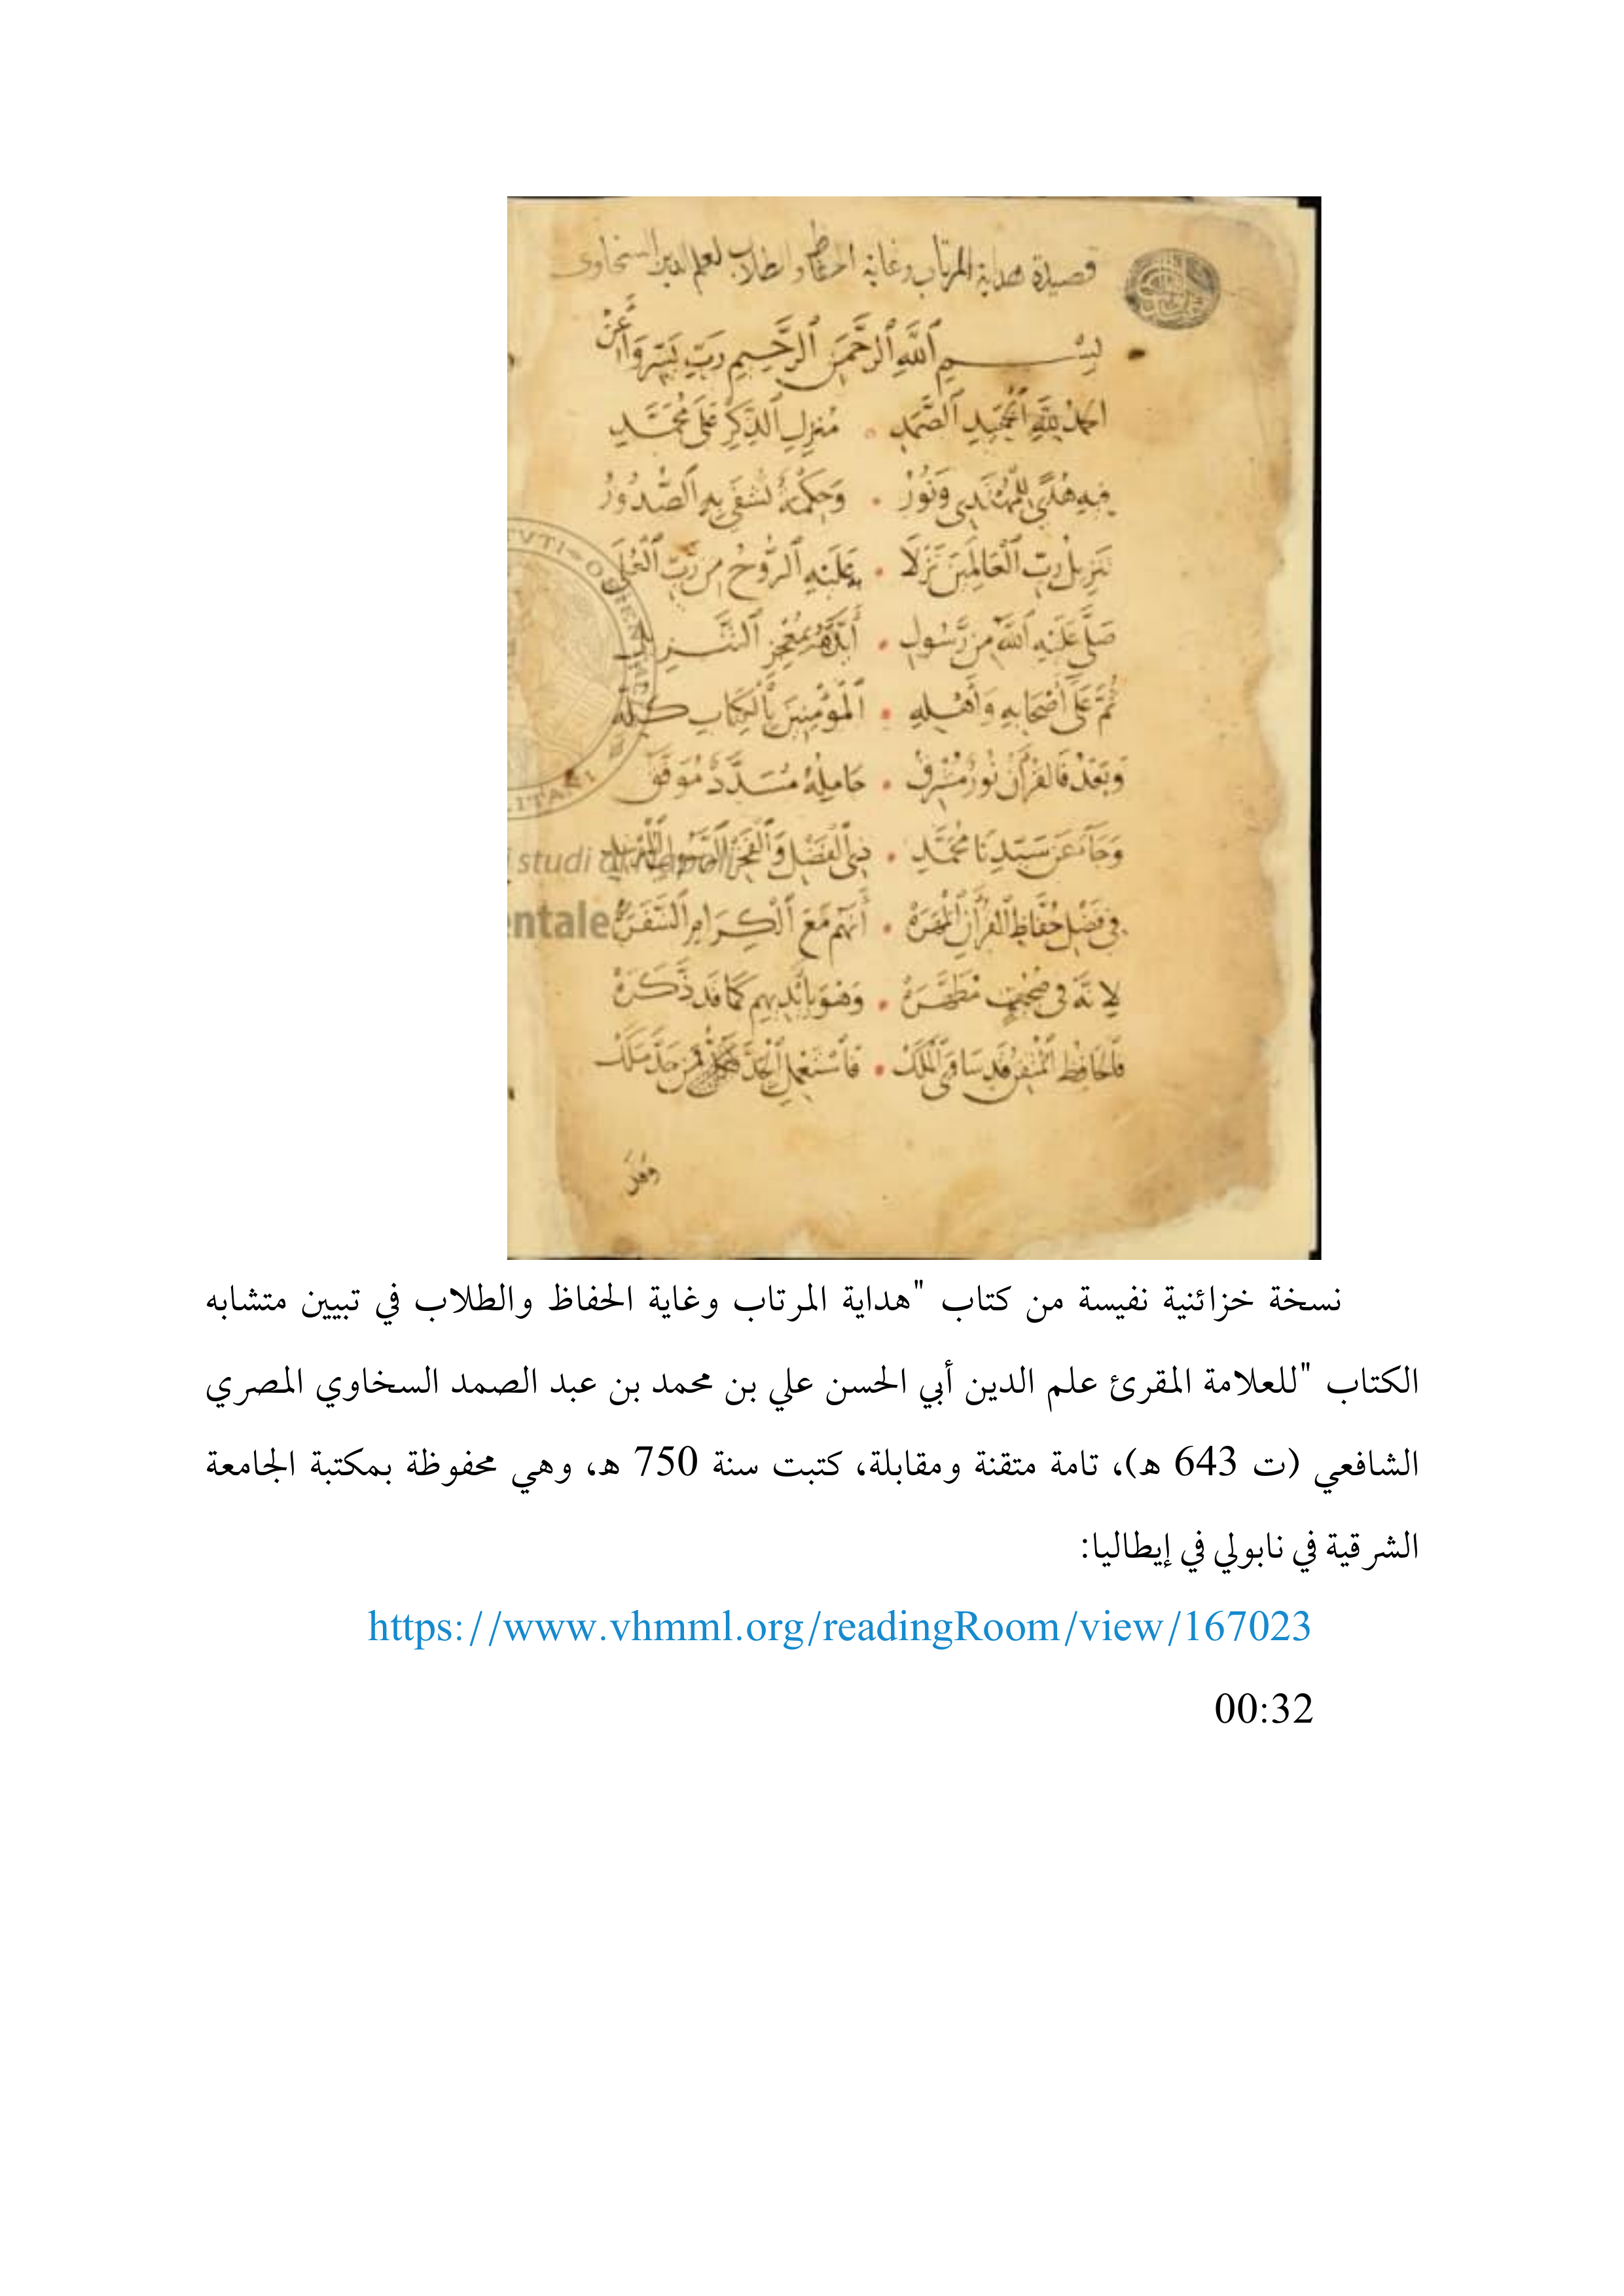 قصيدة هداية المرتاب وغاية الحفاظ والطلاب لعلم الدين السخاوى
بِسْمِ ٱللَّهِ ٱلرَّحْمَٰنِ ٱلرَّحِيمِ رَبِّ يَسِّرْ وَأَعِنْ
الحمد لله الحميد الصمد • منزل الذكر على محمد
فيه هدى للمهتدى ونور • وحكمة تشفى به الصدور
تنزيل رب العالمين نزلا • عليه الروح من رب العلى
صلى عليه الله من رسول • أيده بمعجز التنزيل
ثم على أصحابه وأهله • المؤمنين بالكتاب كله
وبعد فالقرآن نور مشرق • حامله مسدد موفق
وجاء عن سيدنا محمد • ذى الفضل والفخر الرسول المرشد
فى فضل حفاظ القرآن المهره • أنهم مع الكرام السفره
لأنه فى صحف مطهره • وهو بأيديهم كما قد ذكره
فالحافظ المتقن قد ساوى الملك • فاستعمل الجد فمن جد ملك
وقد
TVTI — ORIENTA
studi di Napoli
entale
نسخة خزائنية نفيسة من كتاب "هداية المرتاب وغاية الحفاظ والطلاب في تبيين متشابه
الكتاب "للعلامة المقرئ علم الدين أبي الحسن علي بن محمد بن عبد الصمد السخاوي المصري
الشافعي (ت 643 هـ)، تامة متقنة ومقابلة، كتبت سنة 750 هـ، وهي محفوظة بمكتبة الجامعة
الشرقية في نابولي في إيطاليا:
https://www.vhmml.org/readingRoom/view/167023
00:32